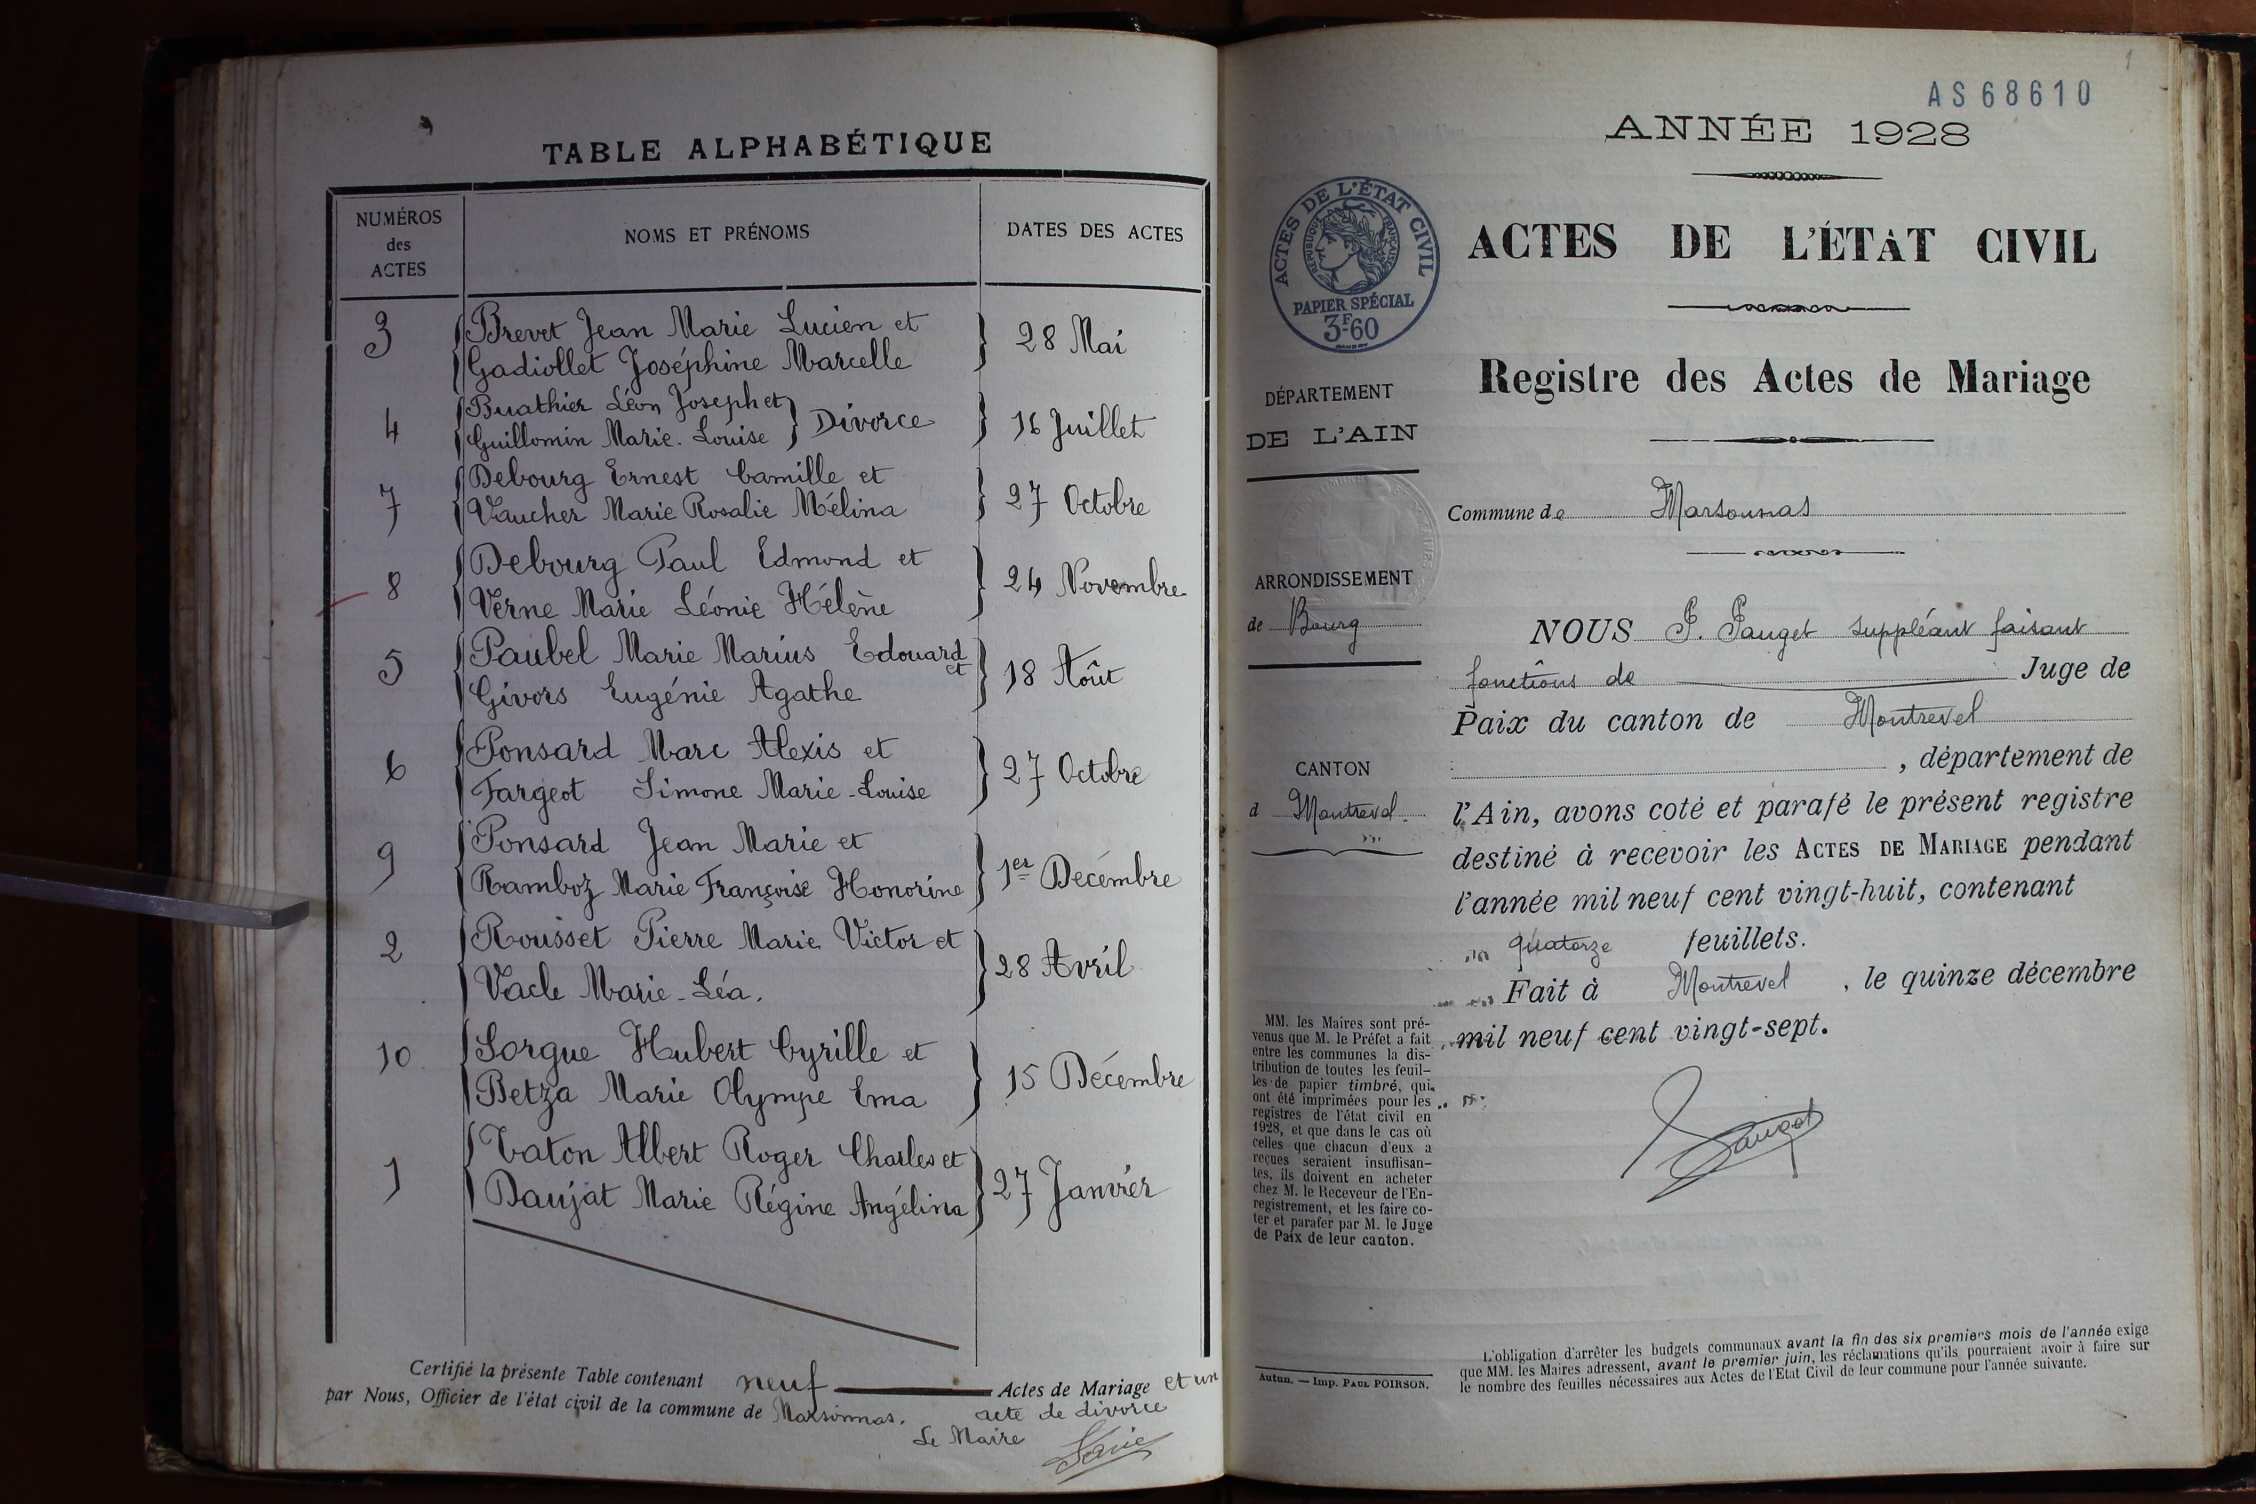 TABLE ALPHABÉTIQUE
NUMÉROS
des
ACTES
NOMS ET PRÉNOMS
DATES DES ACTES
3 Brevet Jean Marie Lucien et
Gadiollet Joséphine Marcelle
28 Mai
4 Buathier Léon Joseph et
Guillomin Marie-Louise } Divorce
16 Juillet
7 Debourg Ernest Camille et
Vaucher Marie Rosalie Mélina
27 Octobre
8 Debourg Paul Edmond et
Verne Marie Léonie Hélène
24 Novembre
5 Paubel Marie Marius Edouard et
Givors Eugénie Agathe
18 Août
6 Ponsard Marc Alexis et
Fargeot Simone Marie-Louise
27 Octobre
9 Ponsard Jean Marie et
Ramboz Marie Françoise Honorine
1er Décembre
2 Rousset Pierre Marie Victor et
Vacle Marie-Léa.
28 Avril
10 Sorgue Hubert Cyrille et
Betza Marie Olympe Ema
15 Décembre
1 Taton Albert Roger Charles et
Daujat Marie Régine Angélina
27 Janvier
Certifié la présente Table contenant neuf Actes de Mariage et un
par Nous, Officier de l'état civil de la commune de Marsonnas. acte de divorce
Le Maire
1
AS68610
ANNÉE 1928
ACTES DE L'ÉTAT CIVIL
RÉPUBLIQUE FRANÇAISE
PAPIER SPÉCIAL
3F60
ACTES DE L'ÉTAT CIVIL
Registre des Actes de Mariage
DÉPARTEMENT
DE L'AIN
Commune de Marsonnas
ARRONDISSEMENT
de Bourg
CANTON
d Montrevel.
NOUS P. Pauget suppléant faisant
fonctions de Juge de
Paix du canton de Montrevel
, département de
l'Ain, avons coté et parafé le présent registre
destiné à recevoir les ACTES DE MARIAGE pendant
l'année mil neuf cent vingt-huit, contenant
quatorze feuillets.
Fait à Montrevel, le quinze décembre
mil neuf cent vingt-sept.
Pauget
MM. les Maires sont pré-
venus que M. le Préfet a fait
entre les communes la dis-
tribution de toutes les feuil-
les de papier timbré, qui
ont été imprimées pour les
registres de l'état civil en
1928, et que dans le cas où
celles que chacun d'eux a
reçues seraient insuffisan-
tes, ils doivent en acheter
chez M. le Receveur de l'En-
registrement, et les faire co-
ter et parafer par M. le Juge
de Paix de leur canton.
Autun. — Imp. PAUL POIRSON.
L'obligation d'arrêter les budgets communaux avant la fin des six premiers mois de l'année exige
que MM. les Maires adressent, avant le premier juin, les réclamations qu'ils pourraient avoir à faire sur
le nombre des feuilles nécessaires aux Actes de l'Etat Civil de leur commune pour l'année suivante.